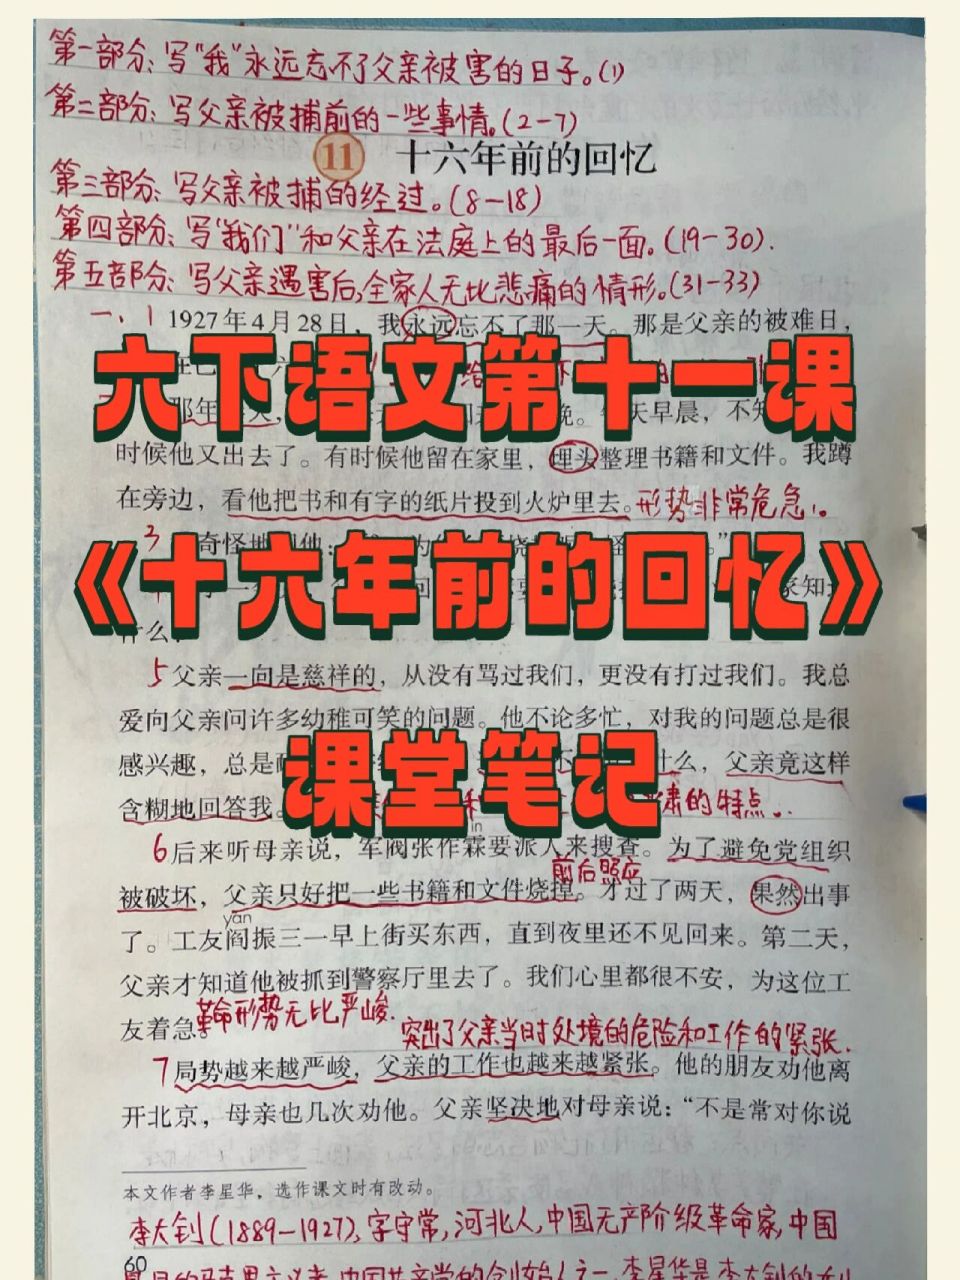 第一部分：写“我”永远忘不了父亲被害的日子。(1)
第二部分：写父亲被捕前的一些事情。(2-7)
11 十六年前的回忆
第三部分：写父亲被捕的经过。(8-18)
第四部分：写“我们”和父亲在法庭上的最后一面。(19-30).
第五部分：写父亲遇害后,全家人无比悲痛的情形。(31-33)
一、1 1927年4月28日，我永远忘不了那一天。那是父亲的被难日，
六下语文第十一课
那年 晚。 天早晨，不知
时候他又出去了。有时候他留在家里，埋头整理书籍和文件。我蹲
在旁边，看他把书和有字的纸片投到火炉里去。形势非常危急！。
3 奇怪地
《十六年前的回忆》
什么
5 父亲一向是慈祥的，从没有骂过我们，更没有打过我们。我总
爱向父亲问许多幼稚可笑的问题。他不论多忙，对我的问题总是很
感兴趣，总是 什么，父亲竟这样
课堂笔记
含糊地回答我。 的特点。
6 后来听母亲说，军阀张作霖要派人来搜查。为了避免党组织
lín
前后照应
被破坏，父亲只好把一些书籍和文件烧掉。才过了两天，果然出事
yán
了。工友阎振三一早上街买东西，直到夜里还不见回来。第二天，
父亲才知道他被抓到警察厅里去了。我们心里都很不安，为这位工
友着急。革命形势无比严峻.
突出了父亲当时处境的危险和工作的紧张.
7 局势越来越严峻，父亲的工作也越来越紧张。他的朋友劝他离
开北京，母亲也几次劝他。父亲坚决地对母亲说：“不是常对你说
本文作者李星华，选作课文时有改动。
李大钊(1889-1927),字守常,河北人,中国无产阶级革命家,中国
60